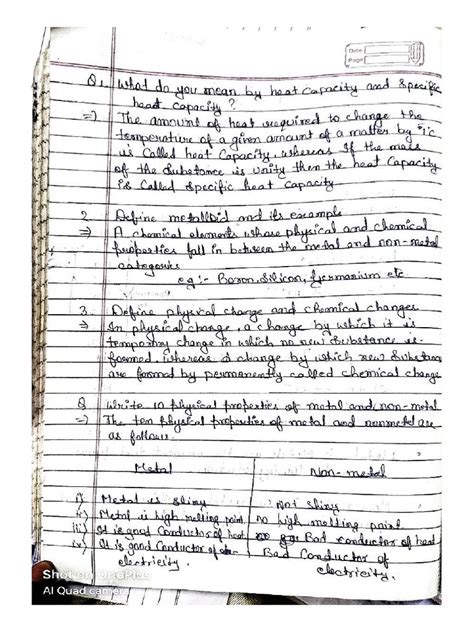 Date
Page
Q1. What do you mean by heat capacity and specific
heat capacity ?
=) The amount of heat required to change the
temperature of a given amount of a matter by 1°c
is called heat capacity, whereas If the mass
of the substance is unity then the heat capacity
is called specific heat capacity
2. Define metalloid and its example
=) A chemical elements whose physical and chemical
properties fall in between the metal and non-metal
categories
eg :- Boron, Silicon, Germanium etc
3. Define physical change and chemical changes
=) In physical change, a change by which it is
temporary change in which no new substance is
formed, whereas a change by which new substance
are formed by permanently called chemical change
Q Write 10 physical properties of metal and non-metal
=) The ten physical properties of metal and nonmetal are
as follows
Metal
Non-metal
i) Metal is Shiny
Not Shiny
ii) Metal is high melting point.
no high melting point
iii) It is good conductor of heat
Bad conductor of heat
iv) It is good conductor of
electricity.
Bad Conductor of
electricity.
Shot on OnePlus
AI Quad camera